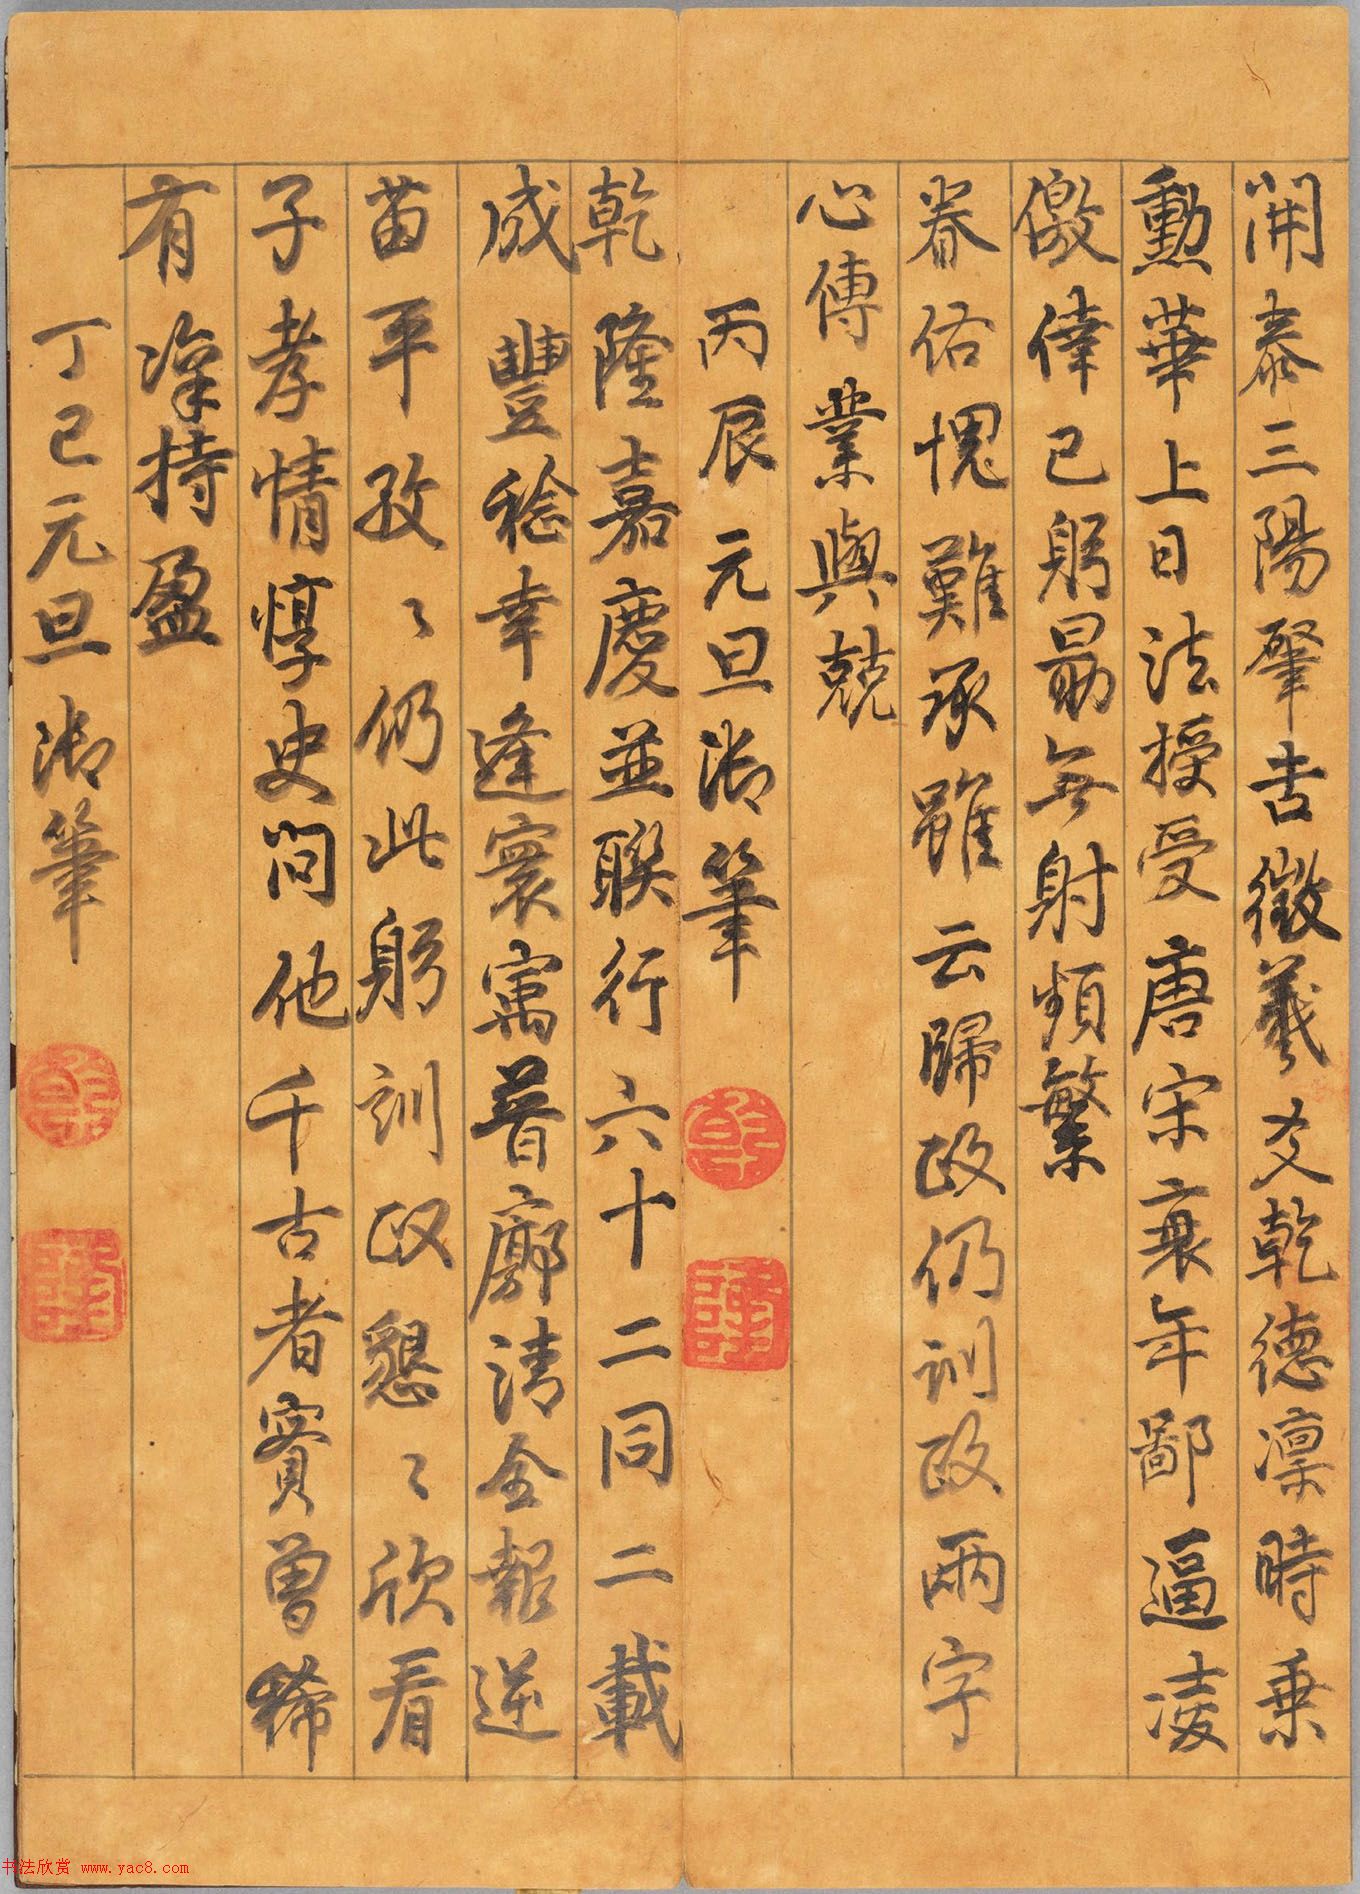 開泰三陽肇吉徵羲爻乾德凜時乘
勳華上日法授受唐宋衰年鄙逼凌
儌倖已躬勗無射頻繁
眷佑愧難承雖云歸政仍訓政兩字
心傳業與兢
丙辰元旦御筆
乾隆嘉慶並聯行六十二同二載
成豐稔幸逢寰寓普廓清全報逆
苗平孜〻仍此躬訓政懇〻欣看
子孝情惇史問他千古者賓曾稀
有凜持盈
丁巳元旦御筆
乾
隆
乾
隆
书法欣赏 www.yac8.com